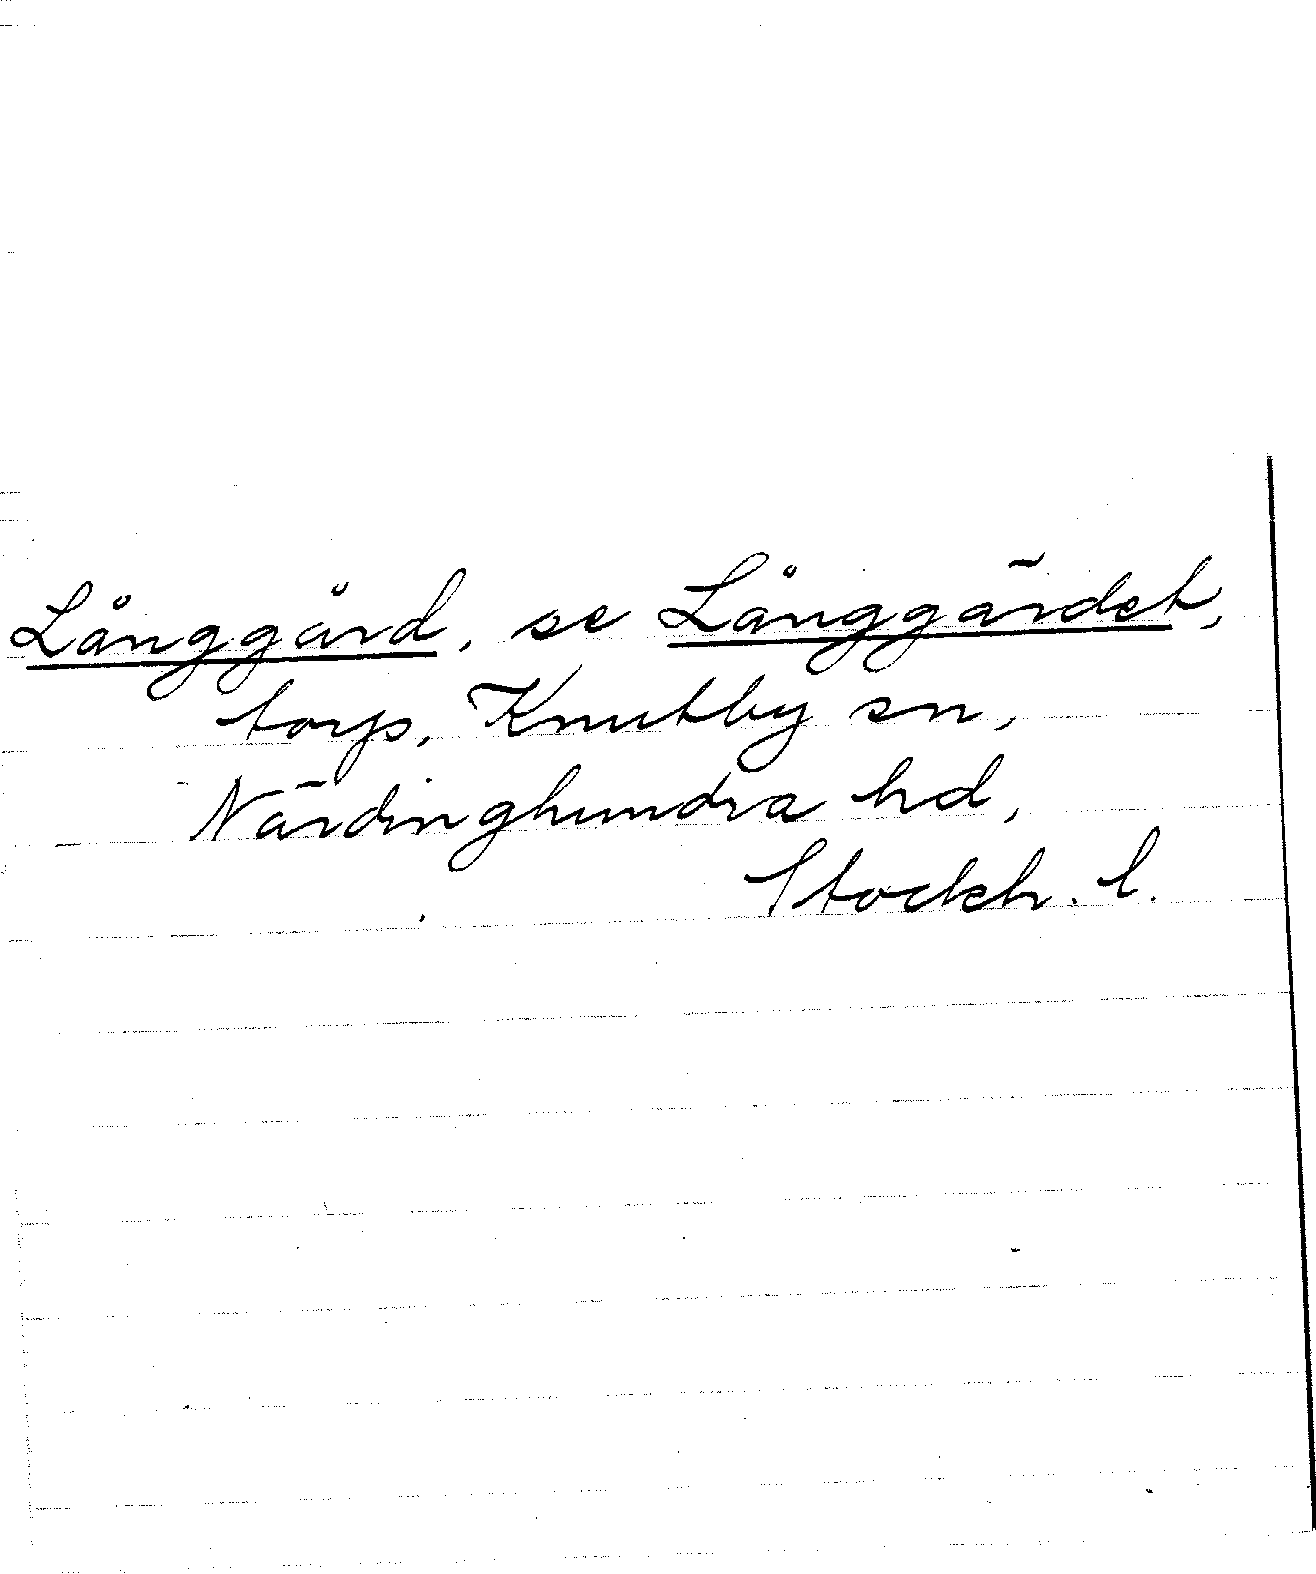 Långgård, se Långgärdet,
torp, Knutby sn,
Närdinghundra hd,
Stockh. l.